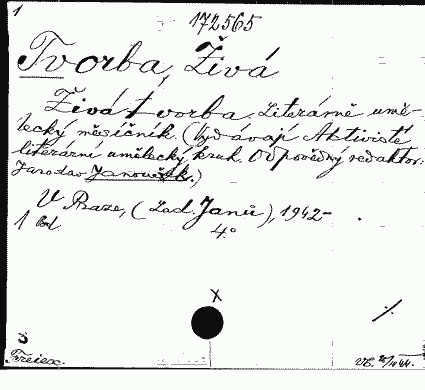 1
172565
Tvorba, Živá
Živá tvorba. Literárně umě-
lecký měsíčník. (Vydávají Aktivisté
literární umělecký kruh. Odpovědný redaktor:
Jaroslav Janoušek.)
V Praze, (Lad. Janů), 1942-
1 Bd 4°
x